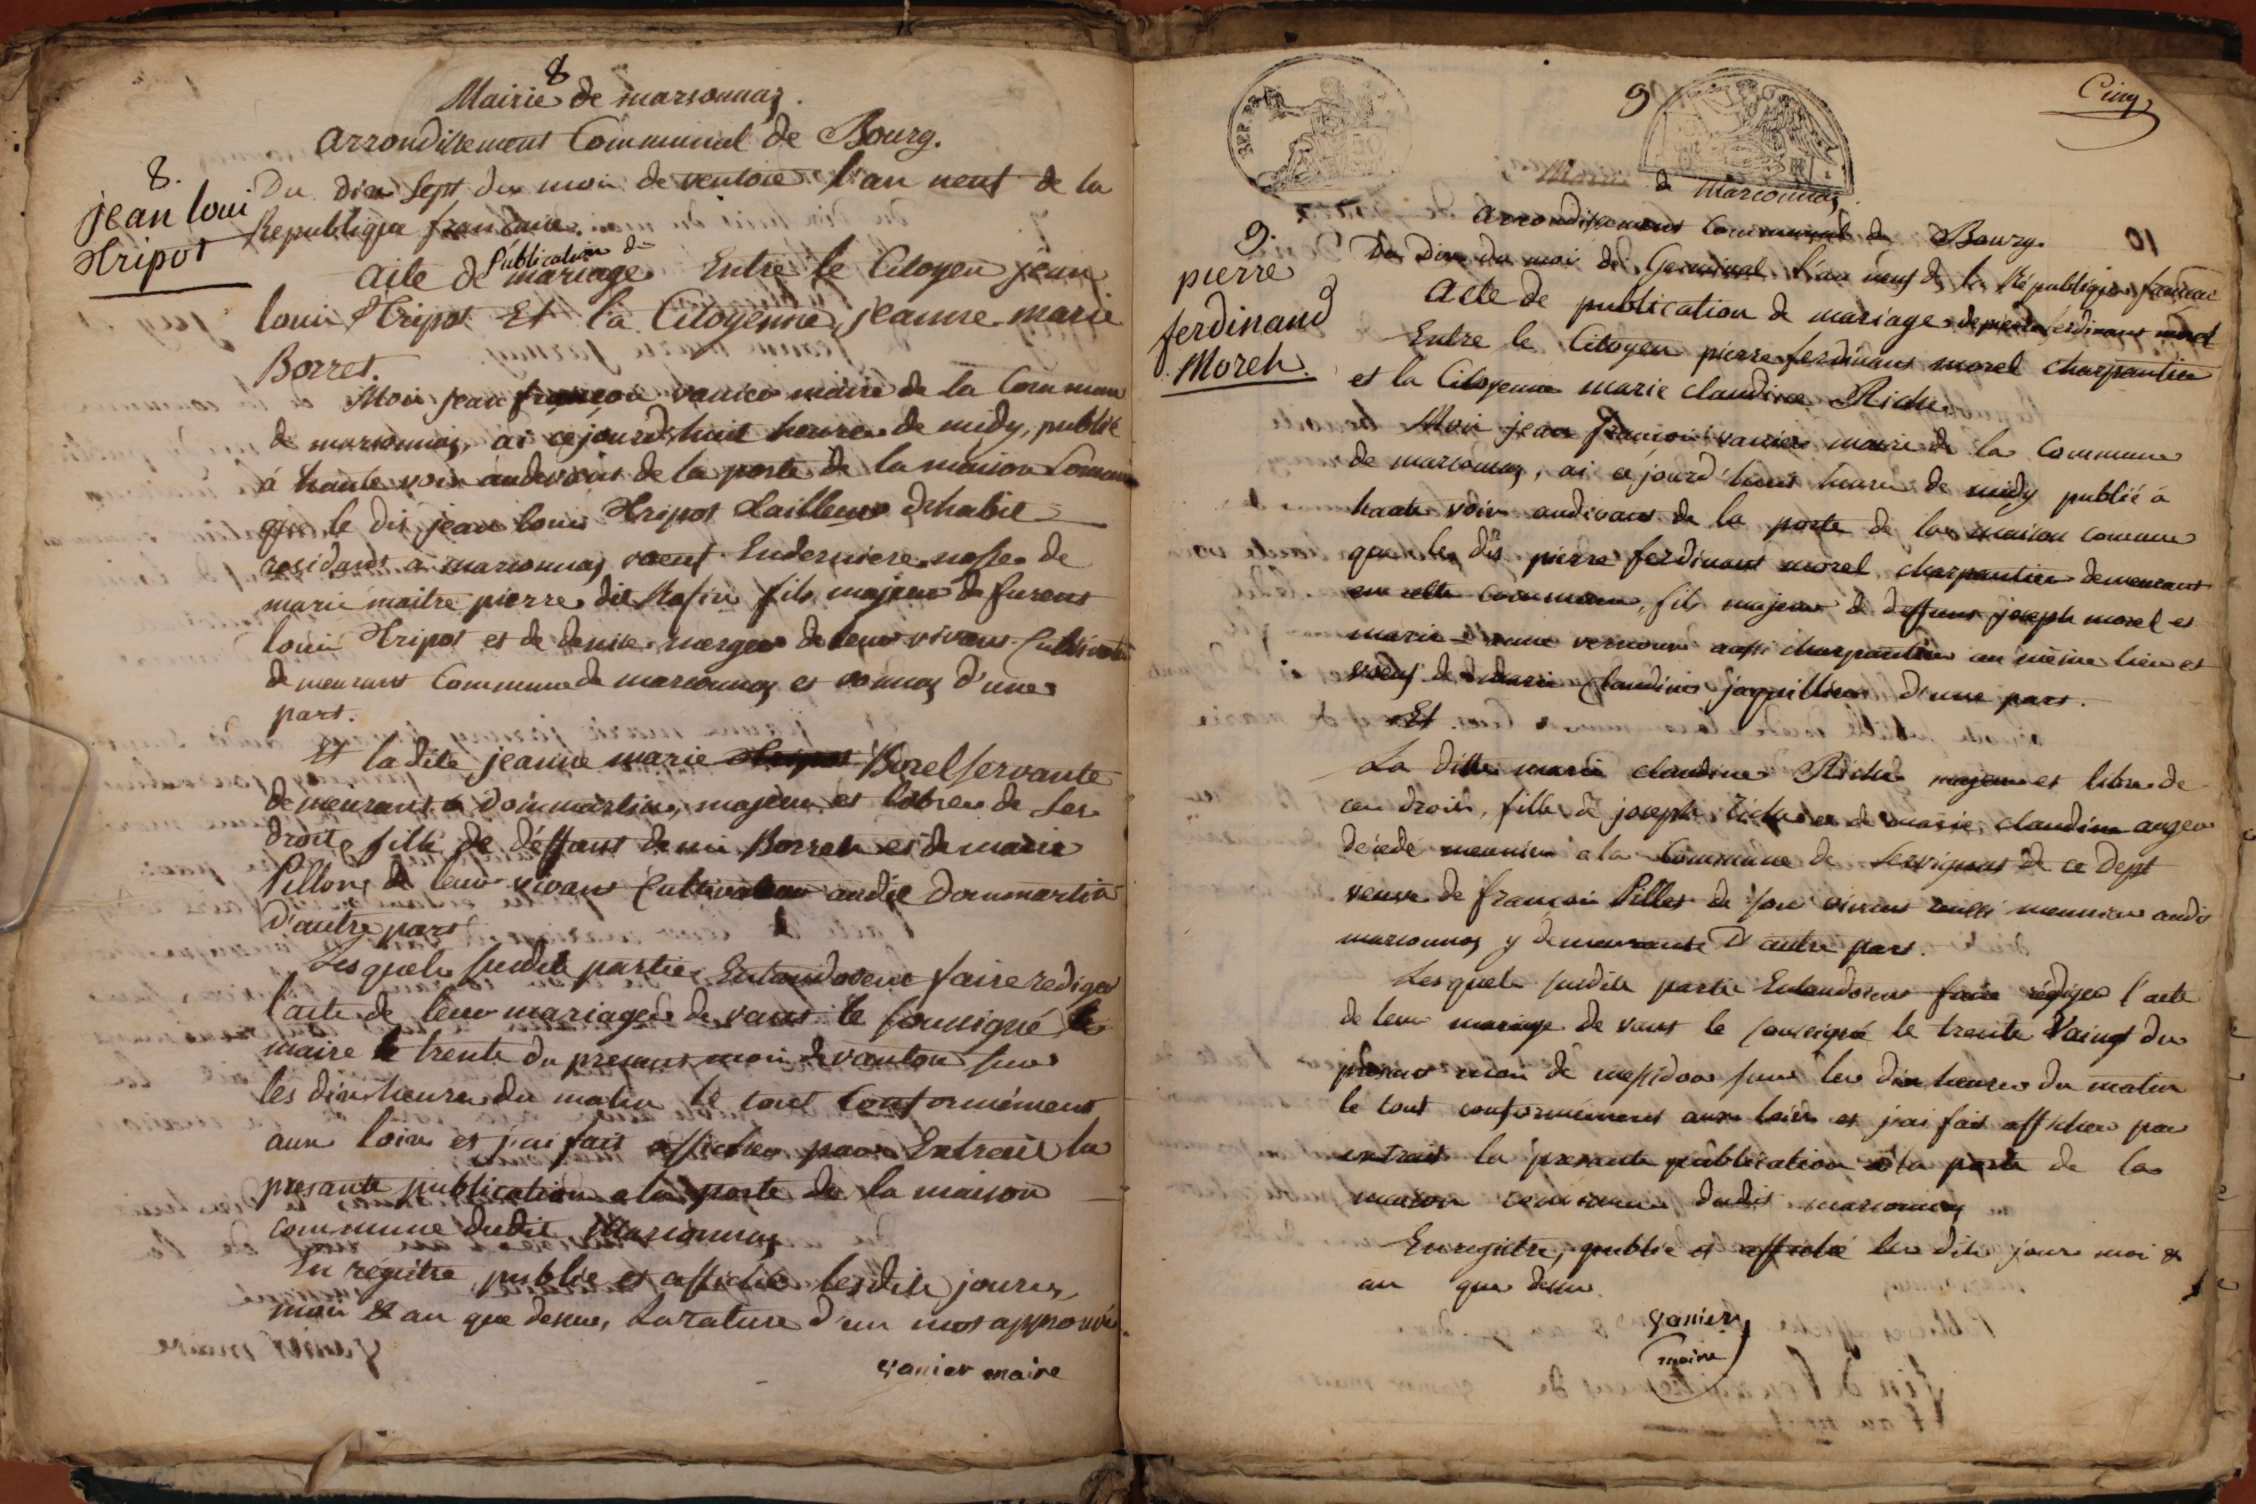 8
Mairie de marsonnaz.
arrondissement Communal de Bourg.
8.
jean loui
Tripot
Du dix Sept du moi de ventose l'an neuf de la
Republique francaise.
Publication de
aite de mariage Entre le Citoyen jean
loui Tripot Et la Citoyenne jeanne marie
Borret.
Moi jean françois vanier maire de la Commune
de marsonnaz, ai cejourd'huit heure de midy, publié
à haute voix audevant de la porte de la maison Comune
que le dit jean loui Tripot tailleur dhabit
residant a marsonnaz voeuf Enderniere nosse de
marie maitre pierre dit Rafin fils majeur defurent
loui Tripot et de denise merger de leur vivant Cultivateur
demeurant Commune de marsonnaz et vonnaz d'une
part.
Et ladite jeanne marie Tripot Borel servante
demeurant a Dommartin, majeur et libre de Ses
droits fille de déffunt denis Borret et de marie
Pillon de leur vivant Cultivateur audit Dommartin
d'autre part
Les quels susdits partie Entandovent faire rediger
l'aite de leur mariage de vant le sousigné le
maire le trente du present moi de vantose sur
les dix heure du matin le tout Conformément
aux loix et j'ai fait afficher par Extrait la
presante publication a la porte de la maison
commune dudit Marsonnaz
En registre publié et affiché lesdits jours,
moi & an que dessus, La rature d'un mot approuvé.
vanier maire
9
Cinq
de Marsonnaz
arrondissement Communal de Bourg.
10
9.
pierre
ferdinand
Morel.
Du Dix du moi de Germinal l'an neuf de la République francaise
Acte de publication de mariage de pierre ferdinant morel
Entre le Citoyen pierre ferdinant morel charpantier
et la Citoyenne marie claudine Riche.
Moi jean françois vanier maire de la Commune
de marsonnaz, ai cejourd'huit heure de midy publié à
haute voix audevant de la porte de la maison comune
que le dit pierre ferdinant morel charpantier demeurant
en cette commune, fils majeur de deffunt joseph morel et
marie anne vernoux aussi charpantier au même lieu et
voeuf de marie Claudine jaquillier d'une part.
Et
La ditte marie claudine Riche majeure et libre de
ces droits, fille de joseph Riche et de marie claudine anger
décédé meunier a la Commune de Servignat de ce Dept
veuve de françois Pillet de son vivant aussi meunier audit
marsonnaz y demeurante D'autre part.
Les quels susdits partie Entandovent faire rédiger l'acte
de leur mariage de vant le sousigné le trente Vaingt du
present moi de messidor sur les dix heures du matin
le tout conformément aux loix et j'ai fait afficher par
extrait la presante publication à la porte de la
maison commune dudit marsonnaz
Enregistré, publié et affiché les dits jour moi &
an que dessus.
vanier
maire